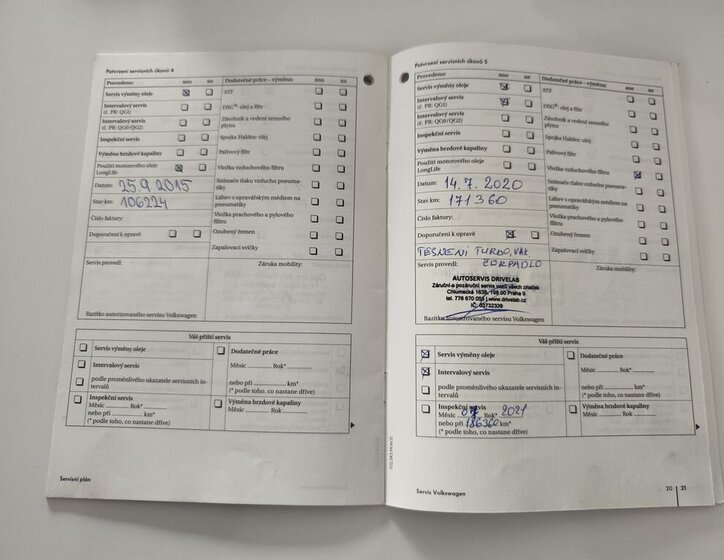 Potvrzení servisních úkonů 4
Provedeno: ano ne
Servis výměny oleje
Intervalový servis
(č. PR: QG1)
Intervalový servis
(č. PR: QG0/QG2)
Inspekční servis
Výměna brzdové kapaliny
Použití motorového oleje
LongLife
Datum: 25.9 2015
Stav km: 106224
Číslo faktury:
Doporučení k opravě
Dodatečné práce – výměna: ano ne
ATF
DSG®: olej a filtr
Zásobník a vedení zemního
plynu
Spojka Haldex: olej
Palivový filtr
Vložka vzduchového filtru
Snímače tlaku vzduchu pneuma-
tiky
Láhev s opravářským médiem na
pneumatiky
Vložka prachového a pylového
filtru
Ozubený řemen
Zapalovací svíčky
Servis provedl:
Záruka mobility:
Razítko autorizovaného servisu Volkswagen
Váš příští servis
Servis výměny oleje
Intervalový servis
podle proměnlivého ukazatele servisních in-
tervalů
Inspekční servis
Měsíc Rok*
nebo při km*
(* podle toho, co nastane dříve)
Dodatečné práce
Měsíc Rok*
nebo při km*
(* podle toho, co nastane dříve)
Výměna brzdové kapaliny
Měsíc Rok
Servisní plán
Potvrzení servisních úkonů 5
Provedeno: ano ne
Servis výměny oleje
Intervalový servis
(č. PR: QG1)
Intervalový servis
(č. PR: QG0/QG2)
Inspekční servis
Výměna brzdové kapaliny
Použití motorového oleje
LongLife
Datum: 14.7.2020
Stav km: 171360
Číslo faktury:
Doporučení k opravě
TĚSNĚNÍ TURDO, VAK
ČERPADLO
Dodatečné práce – výměna: ano ne
ATF
DSG®: olej a filtr
Zásobník a vedení zemního
plynu
Spojka Haldex: olej
Palivový filtr
Vložka vzduchového filtru
Snímače tlaku vzduchu pneuma-
tiky
Láhev s opravářským médiem na
pneumatiky
Vložka prachového a pylového
filtru
Ozubený řemen
Zapalovací svíčky
Servis provedl:
Záruka mobility:
AUTOSERVIS DRIVELAB
Záruční a pozáruční servis vozů všech značek
Chlumecká 1539, 198 00 Praha 9
tel. 776 670 055 | www.drivelab.cz
IČ: 03732339
Razítko autorizovaného servisu Volkswagen
Váš příští servis
Servis výměny oleje
Intervalový servis
podle proměnlivého ukazatele servisních in-
tervalů
Inspekční servis
Měsíc 07 Rok* 2021
nebo při 186360 km*
(* podle toho, co nastane dříve)
Dodatečné práce
Měsíc Rok*
nebo při km*
(* podle toho, co nastane dříve)
Výměna brzdové kapaliny
Měsíc Rok
Servis Volkswagen
20 21